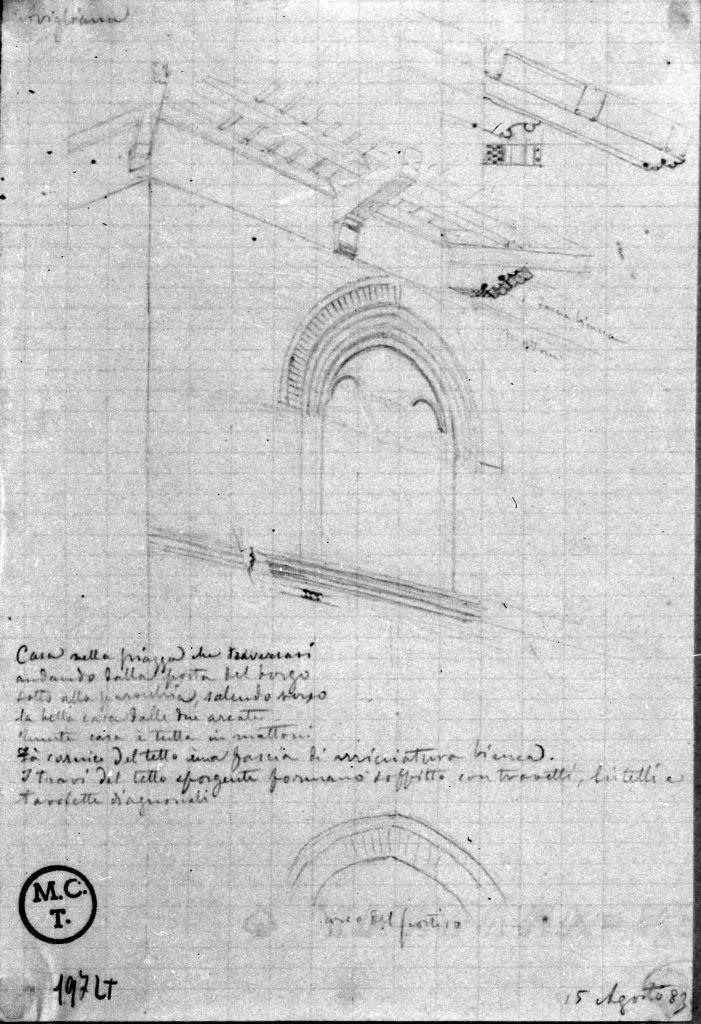 Avigliana
fascia bianca
mattoni
Casa nella piazza che traversasi
andando dalla porta del borgo
sotto alla parrochia, salendo verso
la bella casa dalle due arcate
Questa casa è tutta in mattoni
Fà cornice del tetto una fascia di arriciatura bianca.
I travi del tetto sporgente formano soffitto con travetti, listelli e
tavolette diagonali
arco del portico
M.C.
T.
15 Agosto 83